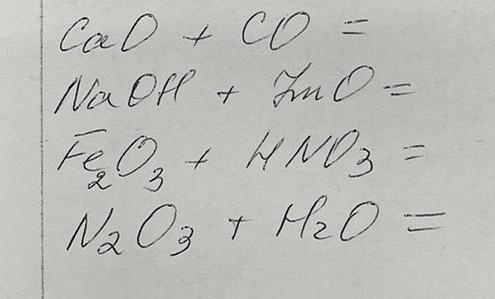 CaO + CO =
NaOH + ZnO =
Fe₂O₃ + HNO₃ =
N₂O₃ + H₂O =